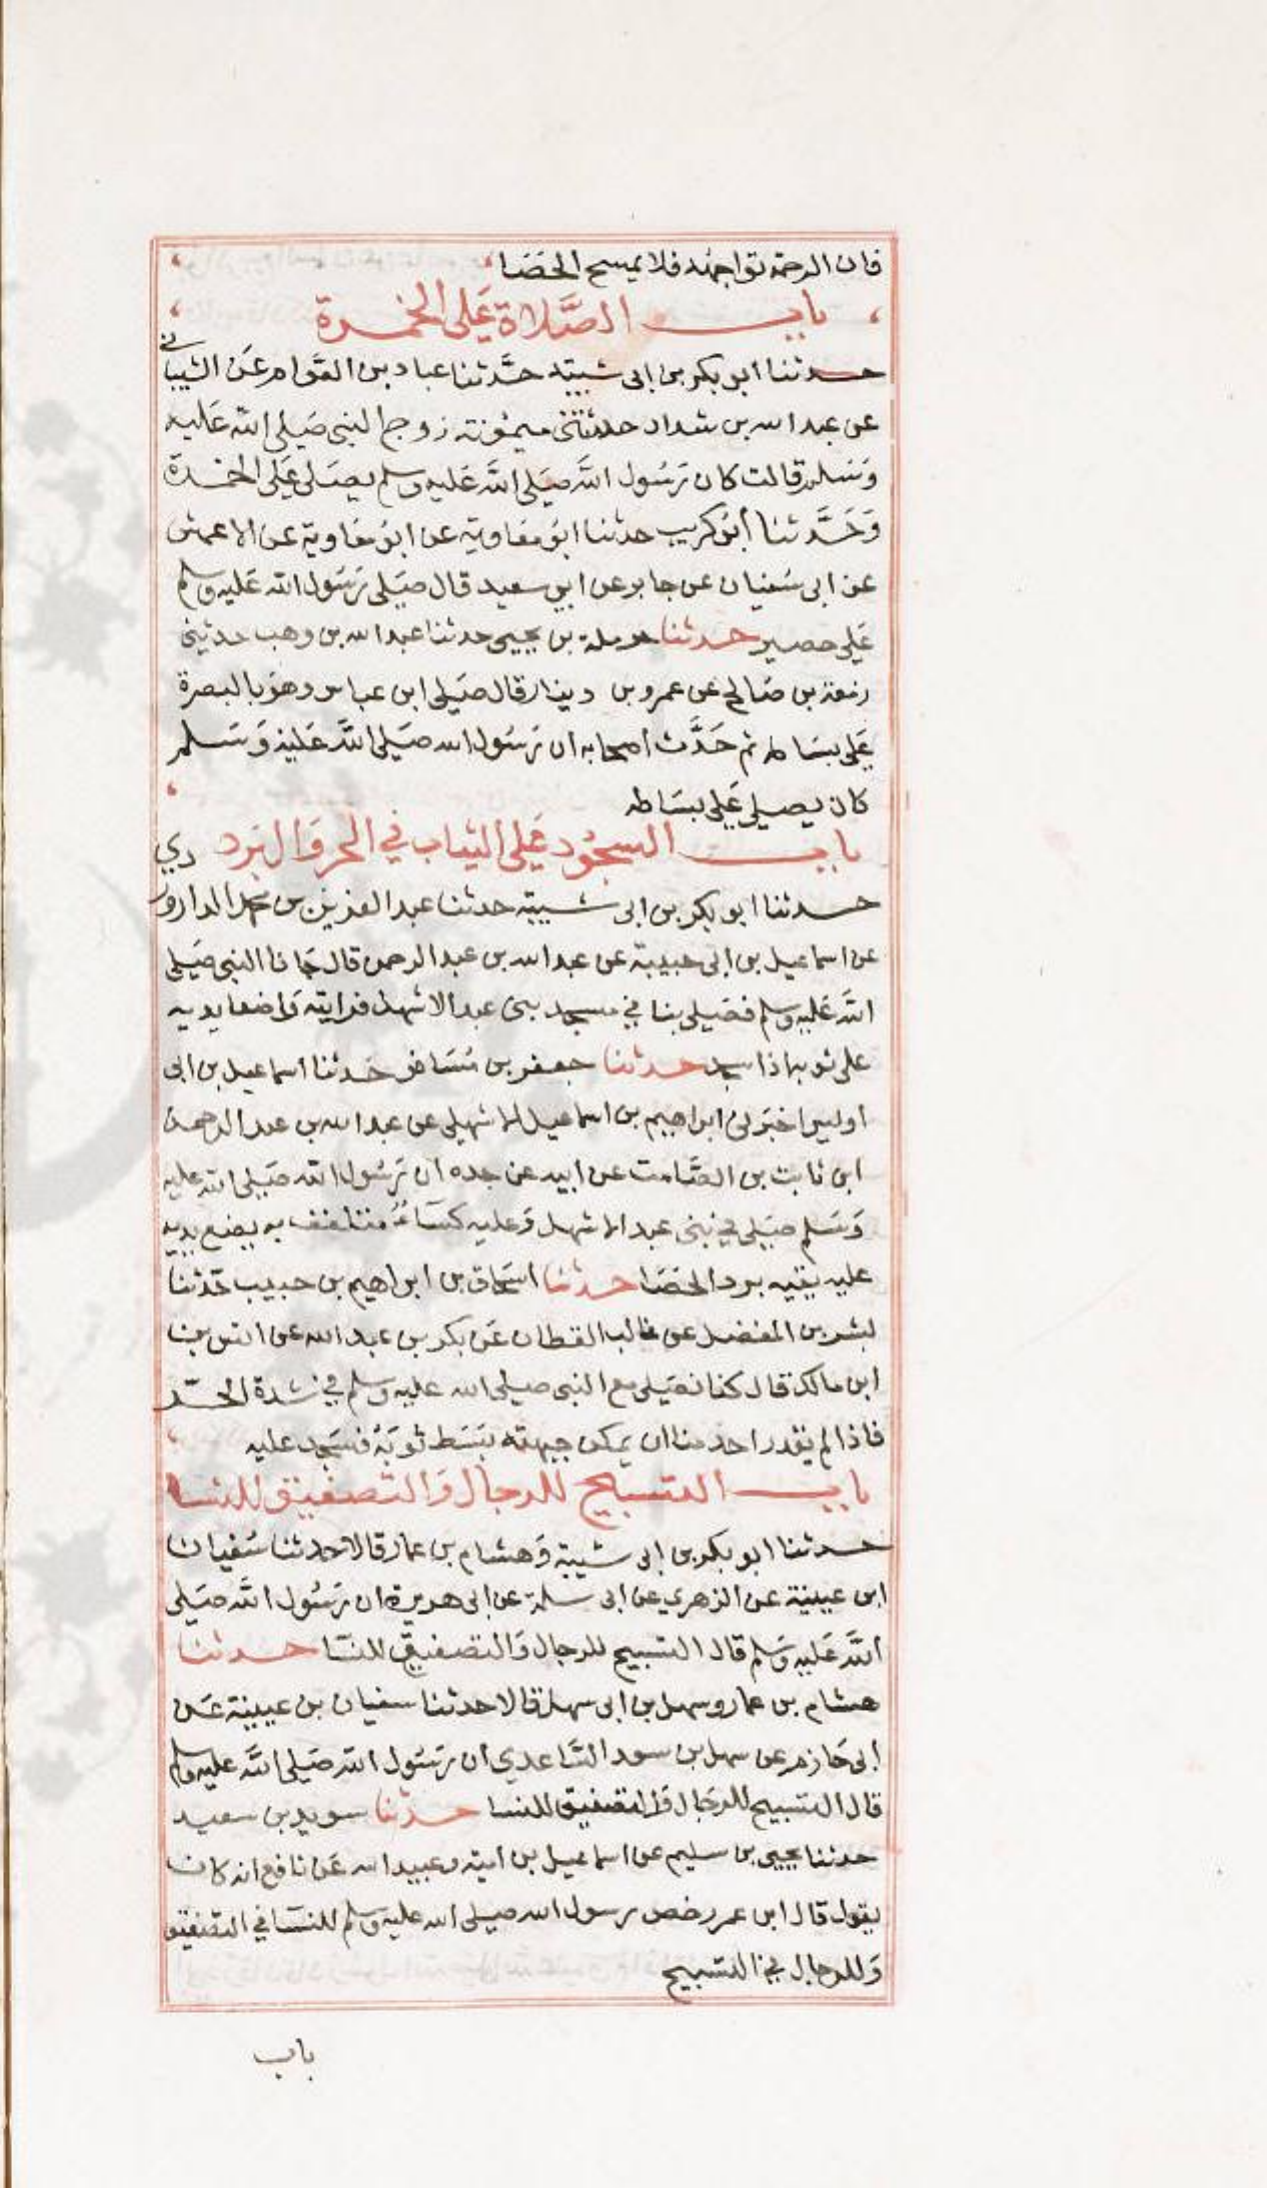 فان الرحمة تواجهه فلا يمسح الحصا
باب الصَّلاة عَلى الخمرة
حدثنا ابو بكر بن ابى شيبته حدَّثنا عباد بن العوام عن الشيبانى
عن عبد الله بن شداد حدثتنى ميمونة زوج النبى صَلى الله عَليه
وَسَلم قالت كان رَسُول الله صَلى اللَّه عَليه وسلم يصَلى عَلى الخمرة
وَحَدَّثنا ابو كريب حدثنا ابو معاوية عن ابو معاوية عن الاعمش
عن ابى سفيان عن جابر عن ابى سعيد قال صَلى رَسُول الله عَليه وسلم
عَلى حصير حدثنا حرملة بن يحيى حدثنا عبد الله بن وهب حدثنى
زمعة بن صَالح عن عمرو بن دينار قال صَلى ابن عباس وهو بالبصرة
عَلى بسَاط ثم حَدَّث اصحابه ان رَسُول الله صَلى اللَّه عَليه وَسَلم
كان يصلى عَلى بسَاط
باب السجُود عَلى الثياب في الحر وَالبَرد
حدثنا ابو بكر بن ابى شيبة حدثنا عبد العزيز بن محمد الداروردي
عن اسماعيل بن ابى حبيبة عن عبد الله بن عبد الرحمن قال جَانا النبى صَلى
اللَّه عَليه وسلم فصَلى بنا في مسجد بنى عبد الاشهل فرايته وَاضعا يديه
على ثوبه اذا سجد حدثنا جعفر بن مُسَافر حَدثنا اسماعيل بن ابى
اوليس اخبَرنى ابراهيم بن اسماعيل الاشهلى عن عبد الله بن عبد الرحمن
ابن ثابت بن الصَّامت عن ابيه عن جده ان رَسُول الله صَلى الله عليه
وَسَلم صَلى في بنى عبد الاشهل وَعليه كسَاءٌ متلفف به يضع يديه
عليه يقيه برد الحصَا حدثنا اسحَاق بن ابراهيم بن حبيب حَدثنا
بشر بن المفضل عن غالب القطان عَن بكر بن عبد الله عن انس بن
ابن مالك قال كنا نصَلى مع النبى صلى الله عليه وسلم في شدة الحَرّ
فاذا لم يقدر احد منا ان يمكن جبهته بَسَط ثوبَهُ فسَجد عليه
باب التسبيح للرجال وَالتصفيق للنسا
حدثنا ابو بكر بن ابى شيبة وَهشام بن عمار قالا حدثنا سُفيان
ابن عيينة عن الزهري عن ابى سلمة عن ابى هريرة ان رَسُول اللَّه صَلى
اللَّه عَليه وسَلم قال التسبيح للرجال وَالتصفيق للنسَا حدثنا
هشام بن عمار وسهل بن ابى سهل قالا حدثنا سفيان بن عيينة عَن
ابى حَازم عن سهل بن سعد السَّاعدي ان رَسُول الله صَلى اللَّه عليه وسلم
قال التسبيح للرجَال وَالتصفيق للنسا حدثنا سويد بن سعيد
حدثنا يحيى بن سليم عن اسماعيل بن امية وعبيد الله عَن نافع انه كان
يقول قال ابن عمر رخص رسول الله صلى الله عليه وسلم للنسَا في التصفيق
وَللرجال في التسبيح
باب